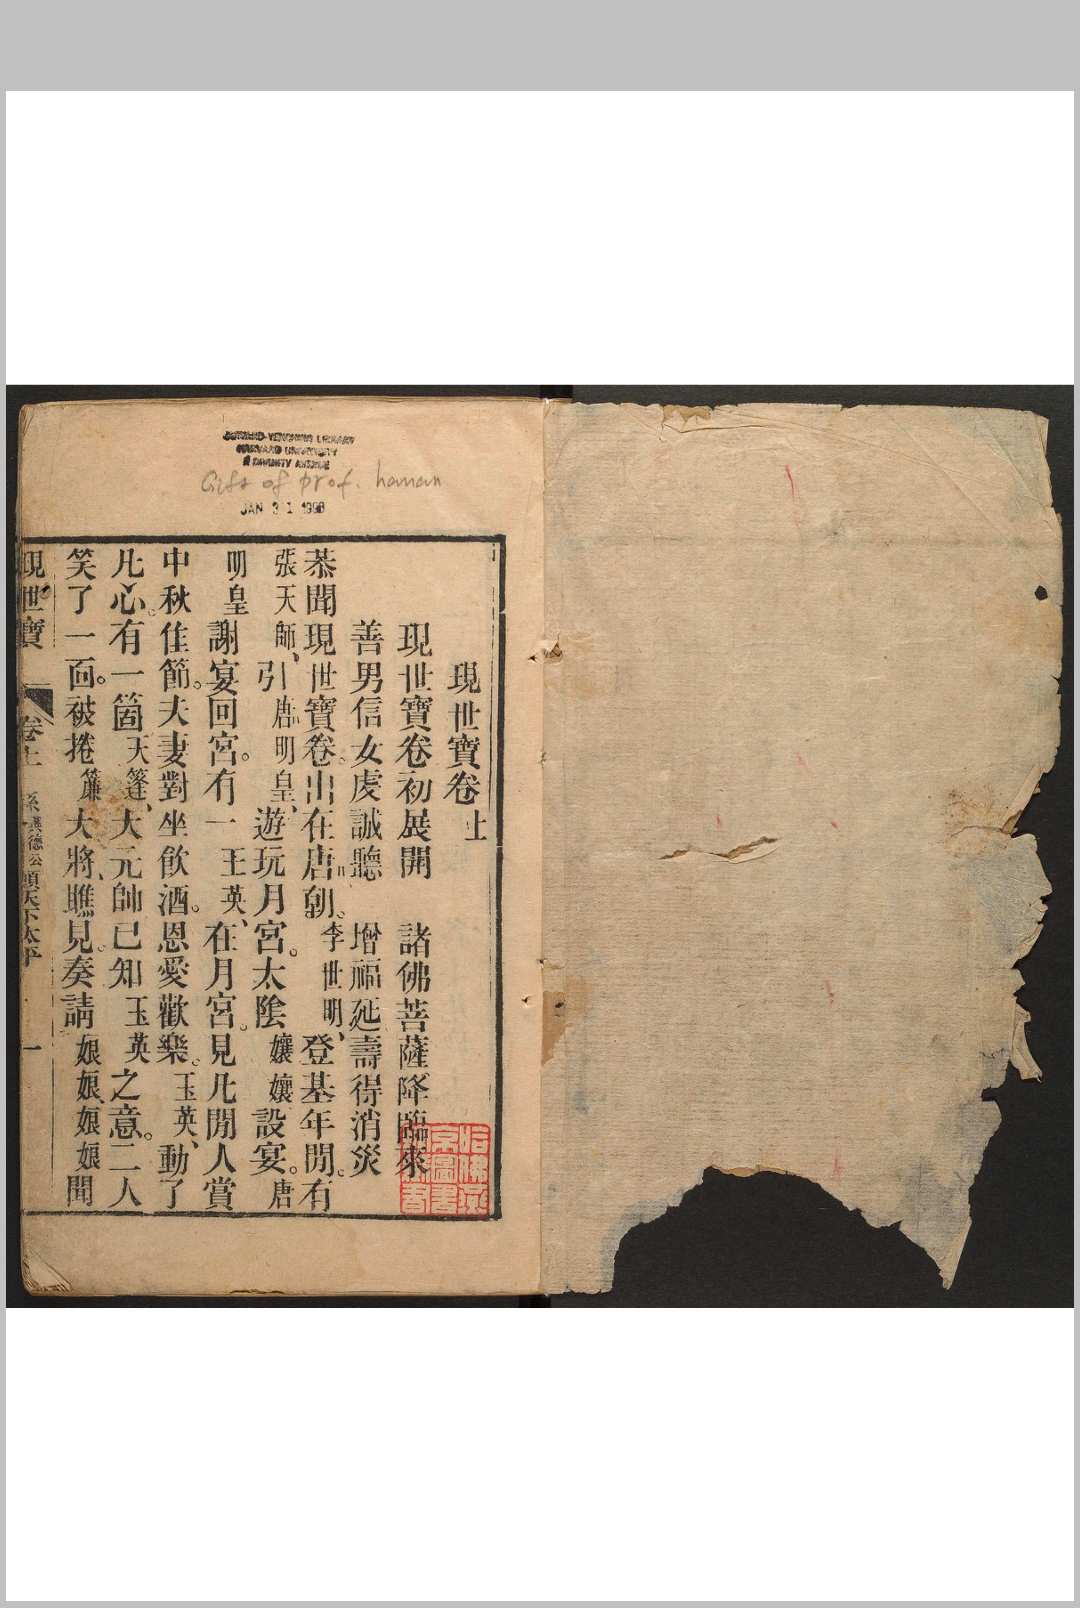 HARVARD-YENCHING LIBRARY
HARVARD UNIVERSITY
2 DIVINITY AVENUE
Gift of prof. hanan
JAN 31 1998
現世寶卷上
現世寶卷初展開　諸佛菩薩降臨來
善男信女虔誠聽　增福延壽得消災
恭聞現世寶卷。出在唐朝。李世明、登基年間。有
張天師、引唐明皇、遊玩月宮。太陰孃孃設宴。唐
明皇謝宴回宮。有一玉英、在月宮。見凡間人賞
中秋佳節。夫妻對坐飲酒。恩愛歡樂。玉英、動了
凡心。有一箇天篷、大元帥已知玉英之意。二人
笑了一面。被捲簾大將瞧見。奏請娘娘、娘娘聞
現世寶　卷上　天下太平　一